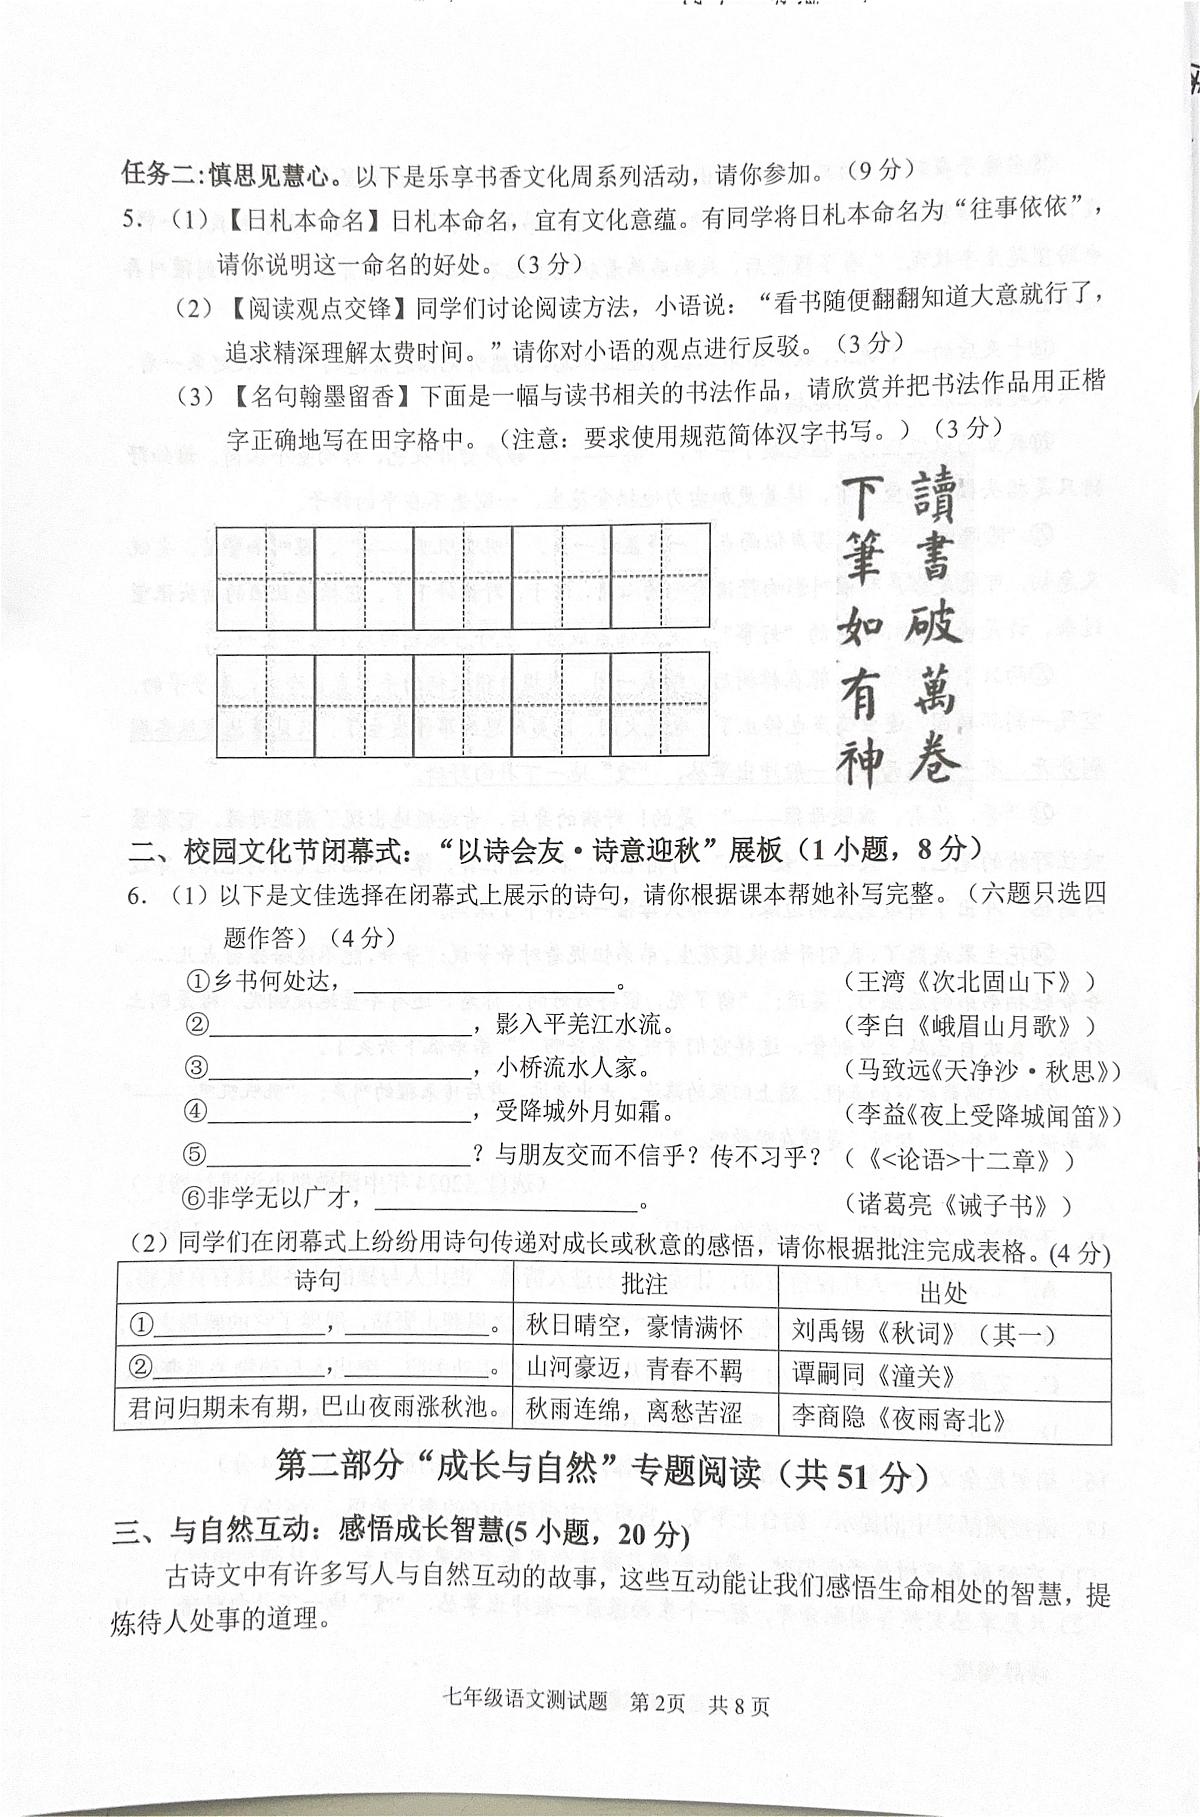 任务二：慎思见慧心。以下是乐享书香文化周系列活动，请你参加。（9 分）
5. （1）【日札本命名】日札本命名，宜有文化意蕴。有同学将日札本命名为“往事依依”，
请你说明这一命名的好处。（3 分）
（2）【阅读观点交锋】同学们讨论阅读方法，小语说：“看书随便翻翻知道大意就行了，
追求精深理解太费时间。”请你对小语的观点进行反驳。（3 分）
（3）【名句翰墨留香】下面是一幅与读书相关的书法作品，请欣赏并把书法作品用正楷
字正确地写在田字格中。（注意：要求使用规范简体汉字书写。）（3 分）
讀書破萬卷
下筆如有神
二、校园文化节闭幕式：“以诗会友·诗意迎秋”展板（1 小题，8 分）
6. （1）以下是文佳选择在闭幕式上展示的诗句，请你根据课本帮她补写完整。（六题只选四
题作答）（4 分）
①乡书何处达，____________________。 （王湾《次北固山下》）
②____________________，影入平羌江水流。 （李白《峨眉山月歌》）
③____________________，小桥流水人家。 （马致远《天净沙·秋思》）
④____________________，受降城外月如霜。 （李益《夜上受降城闻笛》）
⑤____________________？与朋友交而不信乎？传不习乎？ （《<论语>十二章》）
⑥非学无以广才，____________________。 （诸葛亮《诫子书》）
（2）同学们在闭幕式上纷纷用诗句传递对成长或秋意的感悟，请你根据批注完成表格。(4 分)
诗句 批注 出处
①______________，____________。 秋日晴空，豪情满怀 刘禹锡《秋词》（其一）
②______________，____________。 山河豪迈，青春不羁 谭嗣同《潼关》
君问归期未有期，巴山夜雨涨秋池。 秋雨连绵，离愁苦涩 李商隐《夜雨寄北》
第二部分“成长与自然”专题阅读（共 51 分）
三、与自然互动：感悟成长智慧(5 小题，20 分)
古诗文中有许多写人与自然互动的故事，这些互动能让我们感悟生命相处的智慧，提
炼待人处事的道理。
七年级语文测试题 第 2页 共 8 页